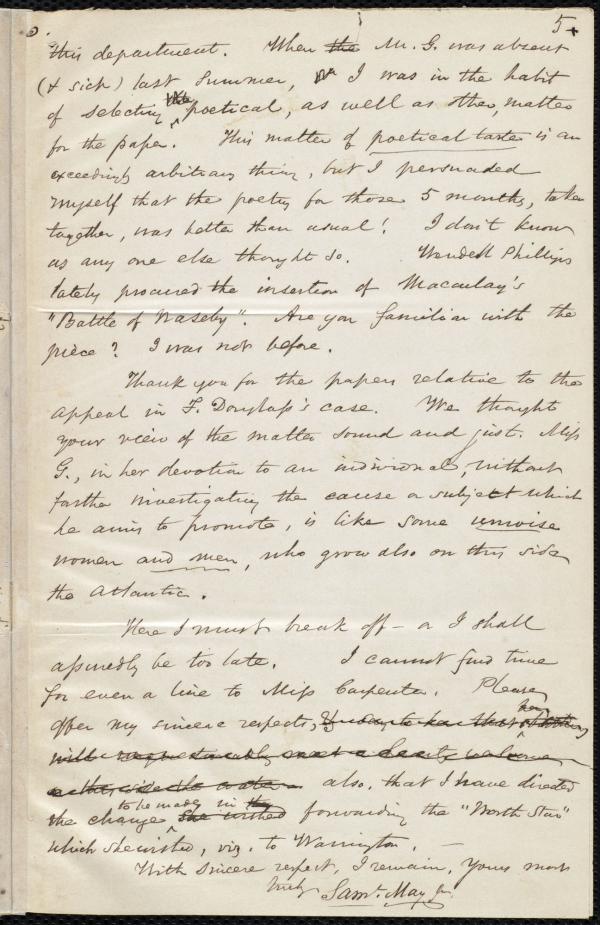 5
this department. When the Mr. G. was absent
(& sick) last Summer, I was in the habit
of selecting the poetical, as well as other, matter
for the paper. This matter of poetical taste is an
exceedingly arbitrary thing, but I persuaded
myself that the poetry for those 5 months, taken
together, was better than usual! I don't know
as any one else thought so. Wendell Phillips
lately procured the insertion of Macaulay's
"Battle of Naseby". Are you familiar with the
piece? I was not before.
Thank you for the papers relative to the
appeal in F. Douglass's case. We thought
your view of the matter sound and just. Miss
G., in her devotion to an individual, without
farther investigating the cause or subject which
he aims to promote, is like some unwise
women and men, who grow also on this side
the Atlantic.
Here I must break off – or I shall
assuredly be too late. I cannot find time
for even a line to Miss Carpenter. Please
her
offer my sincere respects,
will unquestionably meet a hearty welcome
also, that I have directed
to be made, in the
the change she wished forwarding the "North Star"
which she wished, viz. to Warrington. —
With sincere respect, I remain, Yours most
truly Saml. May Jr.